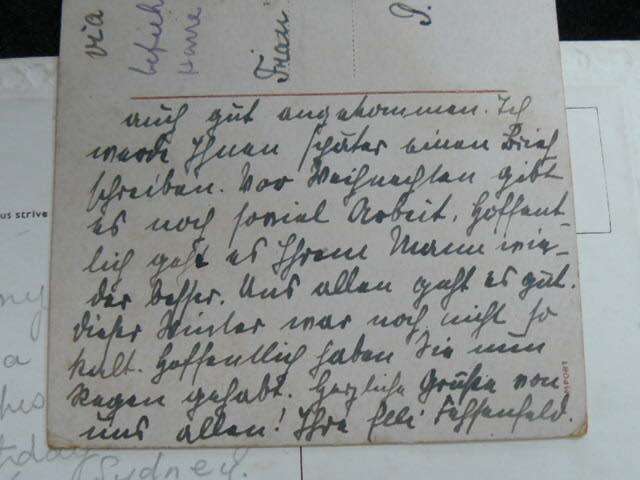 via
Frau
P.
auch gut angekommen. Ich
werde Ihnen später einen Brief
schreiben. Vor Weihnachten gibt
es noch soviel Arbeit. Hoffent-
lich geht es Ihrem Mann wie-
der besser. Uns allen geht es gut.
Dieser Winter war noch nicht so
kalt. Hoffentlich haben Sie nun
Regen gehabt. Herzliche Grüße von
uns allen! Ihre Elli
us strive
Sydney.